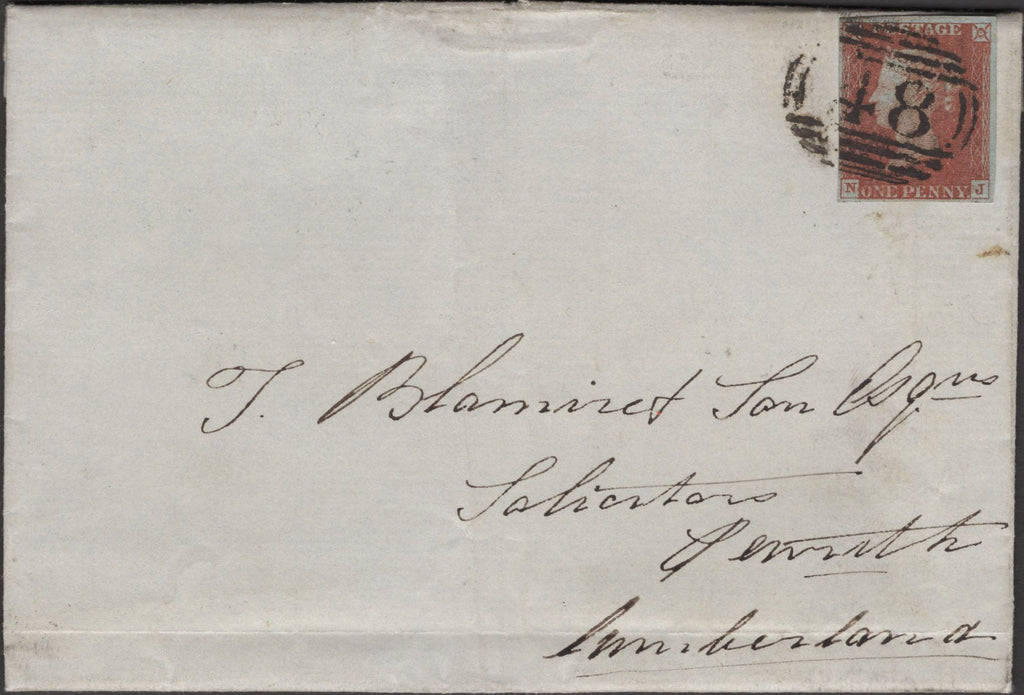 POSTAGE
48
N ONE PENNY. J
T. Blamire & Son Esqrs
Solicitors
Penrith
Cumberland